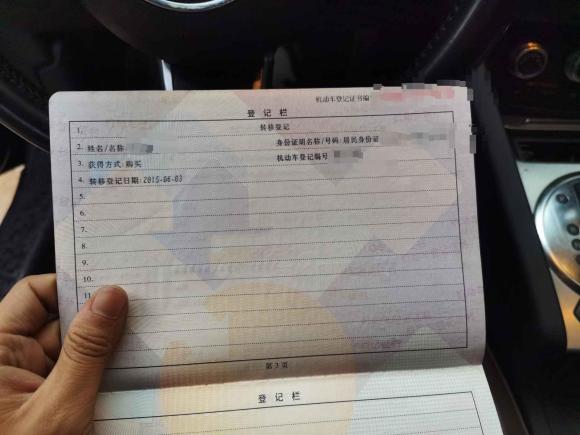 机动车登记证书编
登记栏
1. 转移登记
2. 姓名/名称: 身份证明名称/号码: 居民身份证
3. 获得方式: 购买 机动车登记编号
4. 转移登记日期: 2015-06-03
5.
6.
7.
8.
9.
10.
11
第3页
登记栏